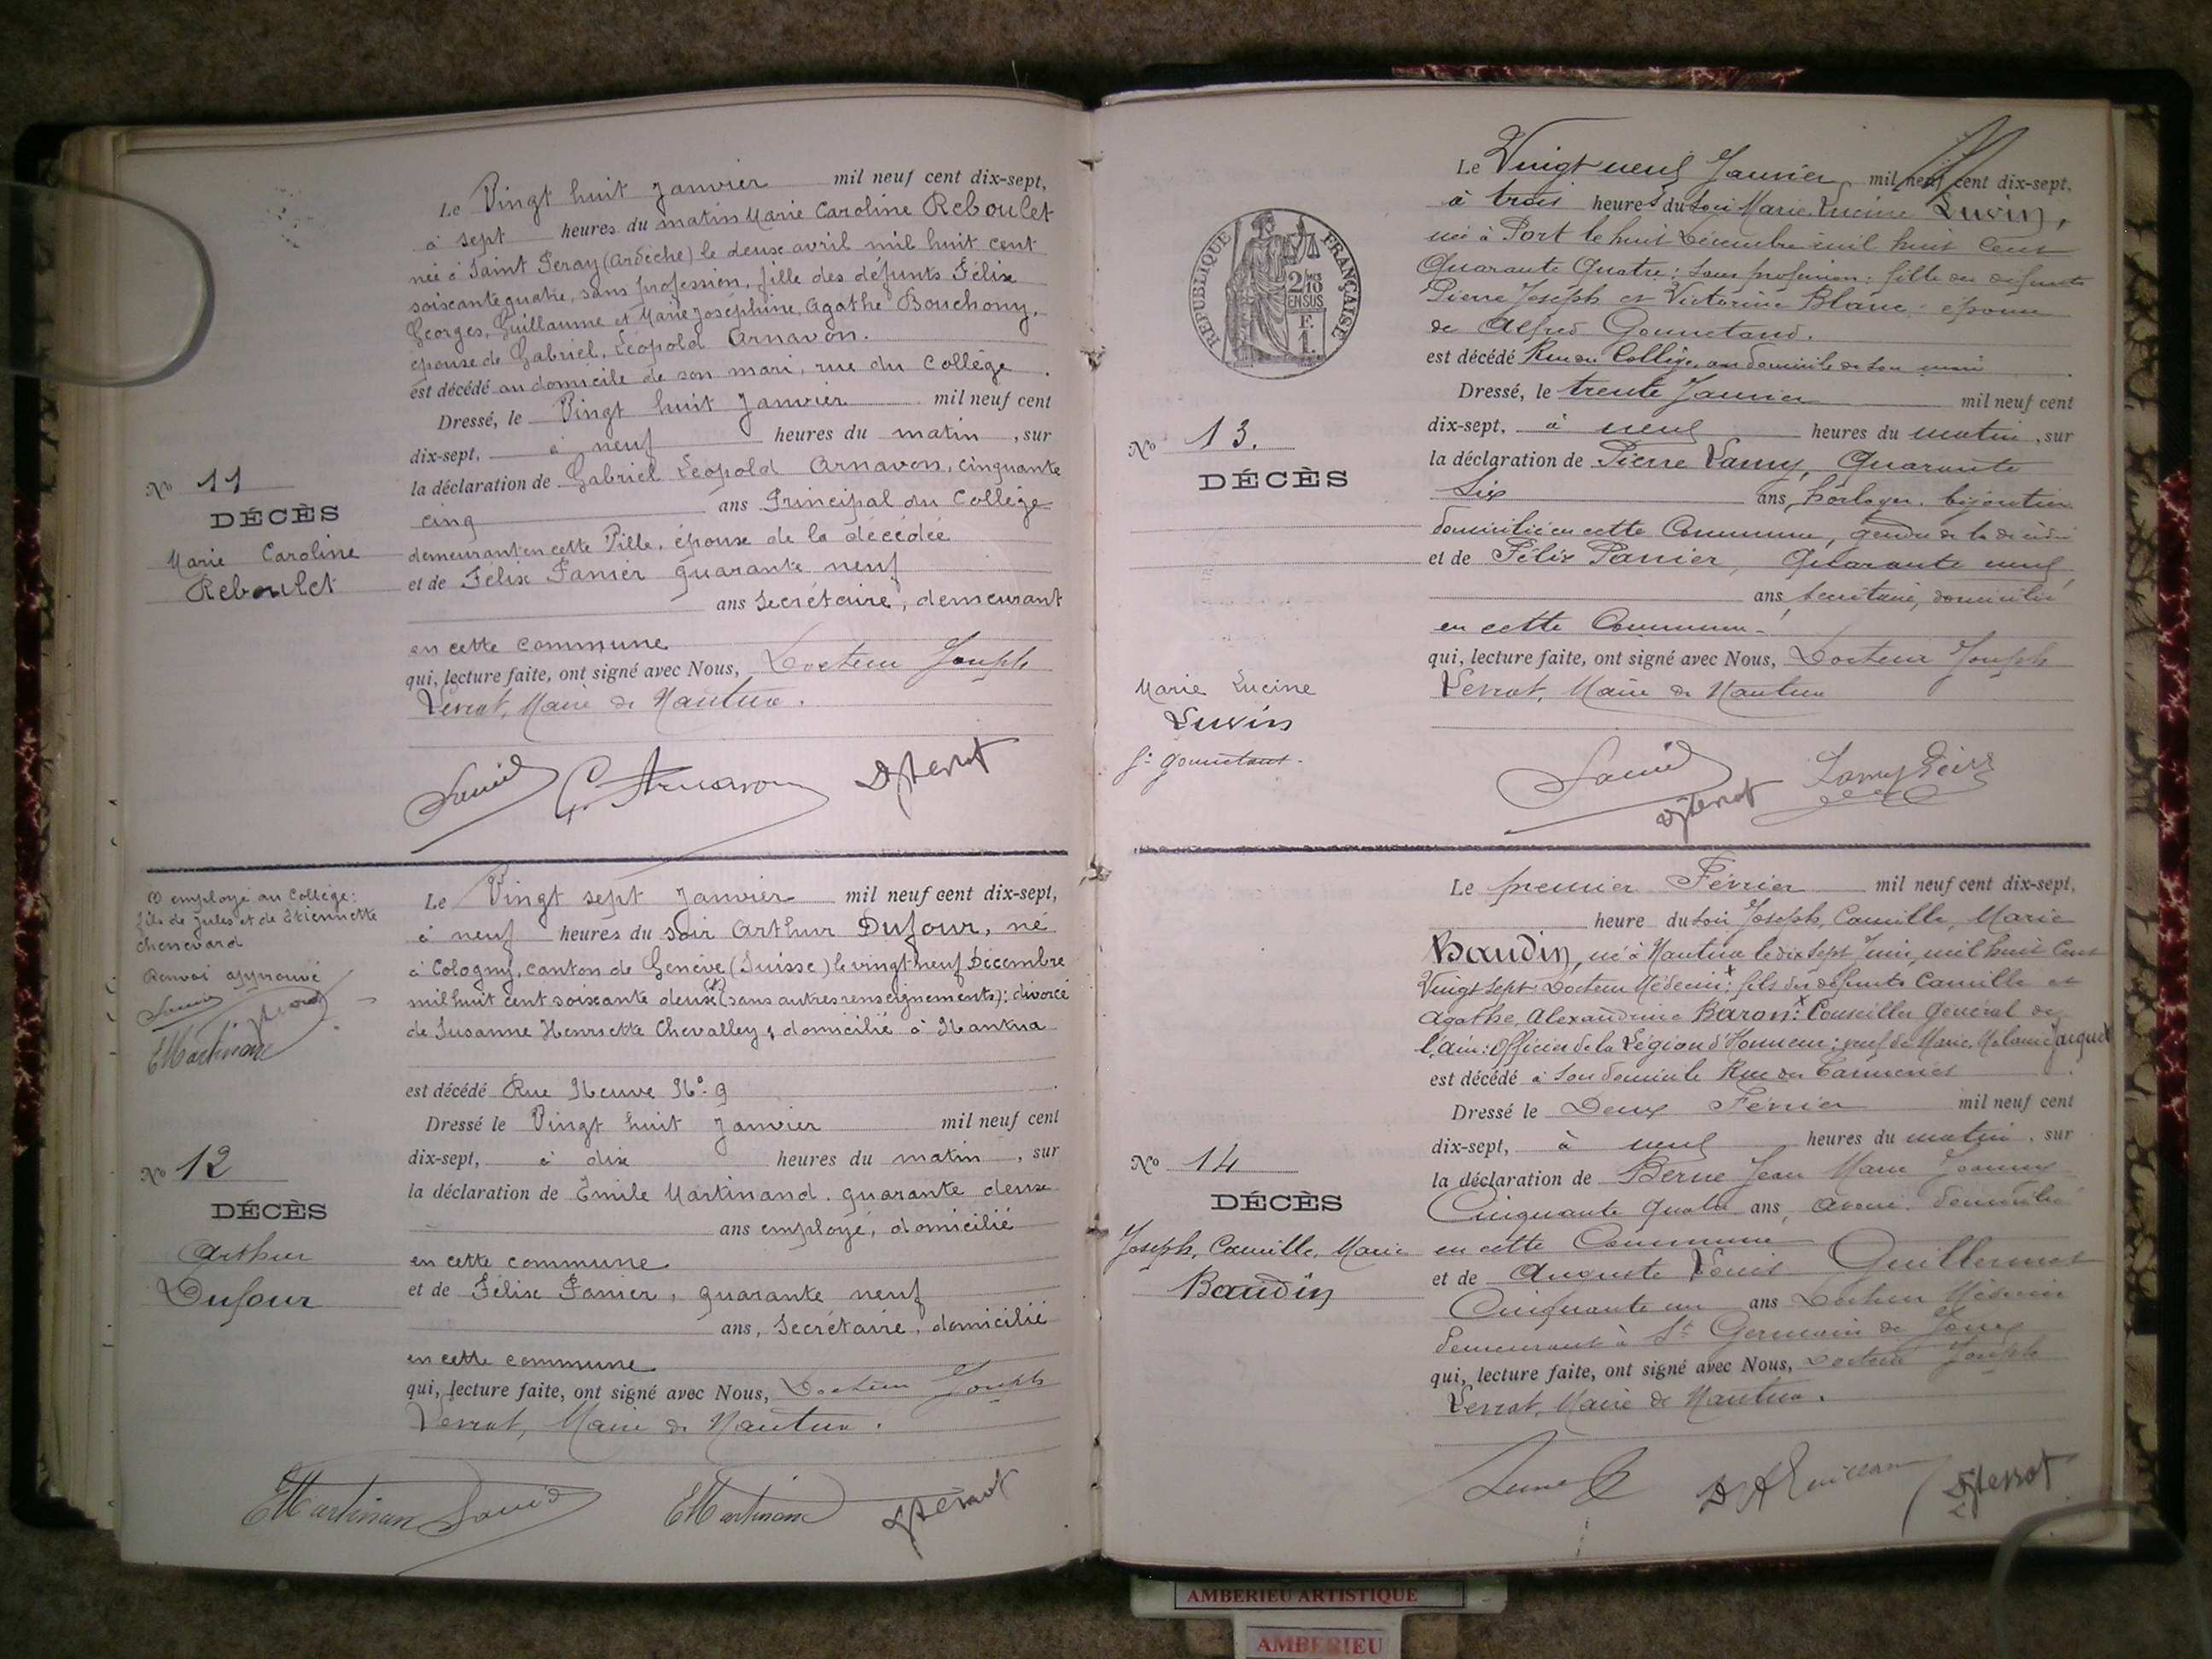 Le Vingt huit Janvier mil neuf cent dix-sept,
à sept heures du matin Marie Caroline Reboulet
née à Saint Peray (Ardèche) le deux avril mil huit cent
soixante quatre, sans profession, fille des défunts Félix
Georges, Guillaume et Marie Joséphine, Agathe Bouchony,
épouse de Gabriel, Léopold Arnavon.
est décédé au domicile de son mari, rue du Collège.
Dressé, le Vingt huit Janvier mil neuf cent
dix-sept, à neuf heures du matin, sur
la déclaration de Gabriel Léopold Arnavon, cinquante
cinq ans Principal du Collège
demeurant en cette Ville, époux de la décédée
et de Félix Panier quarante neuf
ans Secrétaire, demeurant
en cette commune
qui, lecture faite, ont signé avec Nous, Docteur Joseph
Levrat, Maire de Nantua.
No 11
DÉCÈS
Marie Caroline
Reboulet
Panier G. Arnavon Dr Levrat
(1) employé au Collège:
fils de Jules et de Etiennette
Chenevard
Renvoi approuvé
Panier
EMartinand
Le Vingt sept Janvier mil neuf cent dix-sept,
à neuf heures du soir Arthur Dufour, né
à Cologny, canton de Genève (Suisse) le vingt neuf Décembre
mil huit cent soixante deux (1) (sans autres renseignements); divorcé
de Susanne Henriette Chevalley, domicilié à Nantua
est décédé Rue Neuve No 9
Dressé le Vingt huit Janvier mil neuf cent
dix-sept, à dix heures du matin, sur
la déclaration de Emile Martinand. quarante deux
ans employé, domicilié
en cette commune
et de Félix Panier, quarante neuf
ans, Secrétaire, domicilié
en cette commune
qui, lecture faite, ont signé avec Nous, Docteur Joseph
Levrat, Maire de Nantua.
No 12
DÉCÈS
Arthur
Dufour
EMartinand Panier EMartinand Levrat
RÉPUBLIQUE FRANÇAISE
2/10
EN SUS
F.
1.
Le Vingt neuf Janvier mil neuf cent dix-sept,
à trois heures du soir Marie Lucine Luvin,
née à Port le huit Décembre mil huit cent
Quarante Quatre: sans profession: fille des défunts
Pierre Joseph et Victorine Blanc: épouse
de Alfred Gonnetand.
est décédé Rue du Collège, au domicile de son mari
Dressé, le trente Janvier mil neuf cent
dix-sept, à neuf heures du matin, sur
la déclaration de Pierre Lamy, Quarante
Six ans, horloger, bijoutier
domicilié en cette Commune, gendre de la décédée
et de Félix Panier, Quarante neuf
ans, Secrétaire, domicilié
en cette Commune
qui, lecture faite, ont signé avec Nous, Docteur Joseph
Levrat, Maire de Nantua
No 13.
DÉCÈS
Marie Lucine
Luvin
Panier Levrat Lamy
Le premier Février mil neuf cent dix-sept,
heure du soir Joseph, Camille, Marie
Baudin, né à Nantua le dix sept Juin, mil huit cent
Vingt sept: Docteur Médecin: fils des défunts Camille et
Agathe, Alexandrine Baron: Conseiller Général de
l'Ain: Officier de la Légion d'Honneur: veuf de Marie, Mélanie Jacquet
est décédé à son domicile Rue des Tanneries
Dressé le Deux Février mil neuf cent
dix-sept, à neuf heures du matin, sur
la déclaration de Berne Jean Marie Joanny
Cinquante Quatre ans, avoué, domicilié
en cette Commune
et de Auguste Louis Guillermet
Cinquante un ans Docteur Médecin
demeurant à St Germain de Joux
qui, lecture faite, ont signé avec Nous, Docteur Joseph
Levrat, Maire de Nantua.
No 14
DÉCÈS
Joseph, Camille, Marie
Baudin
Levrat
AMBERIEU ARTISTIQUE
AMBERIEU